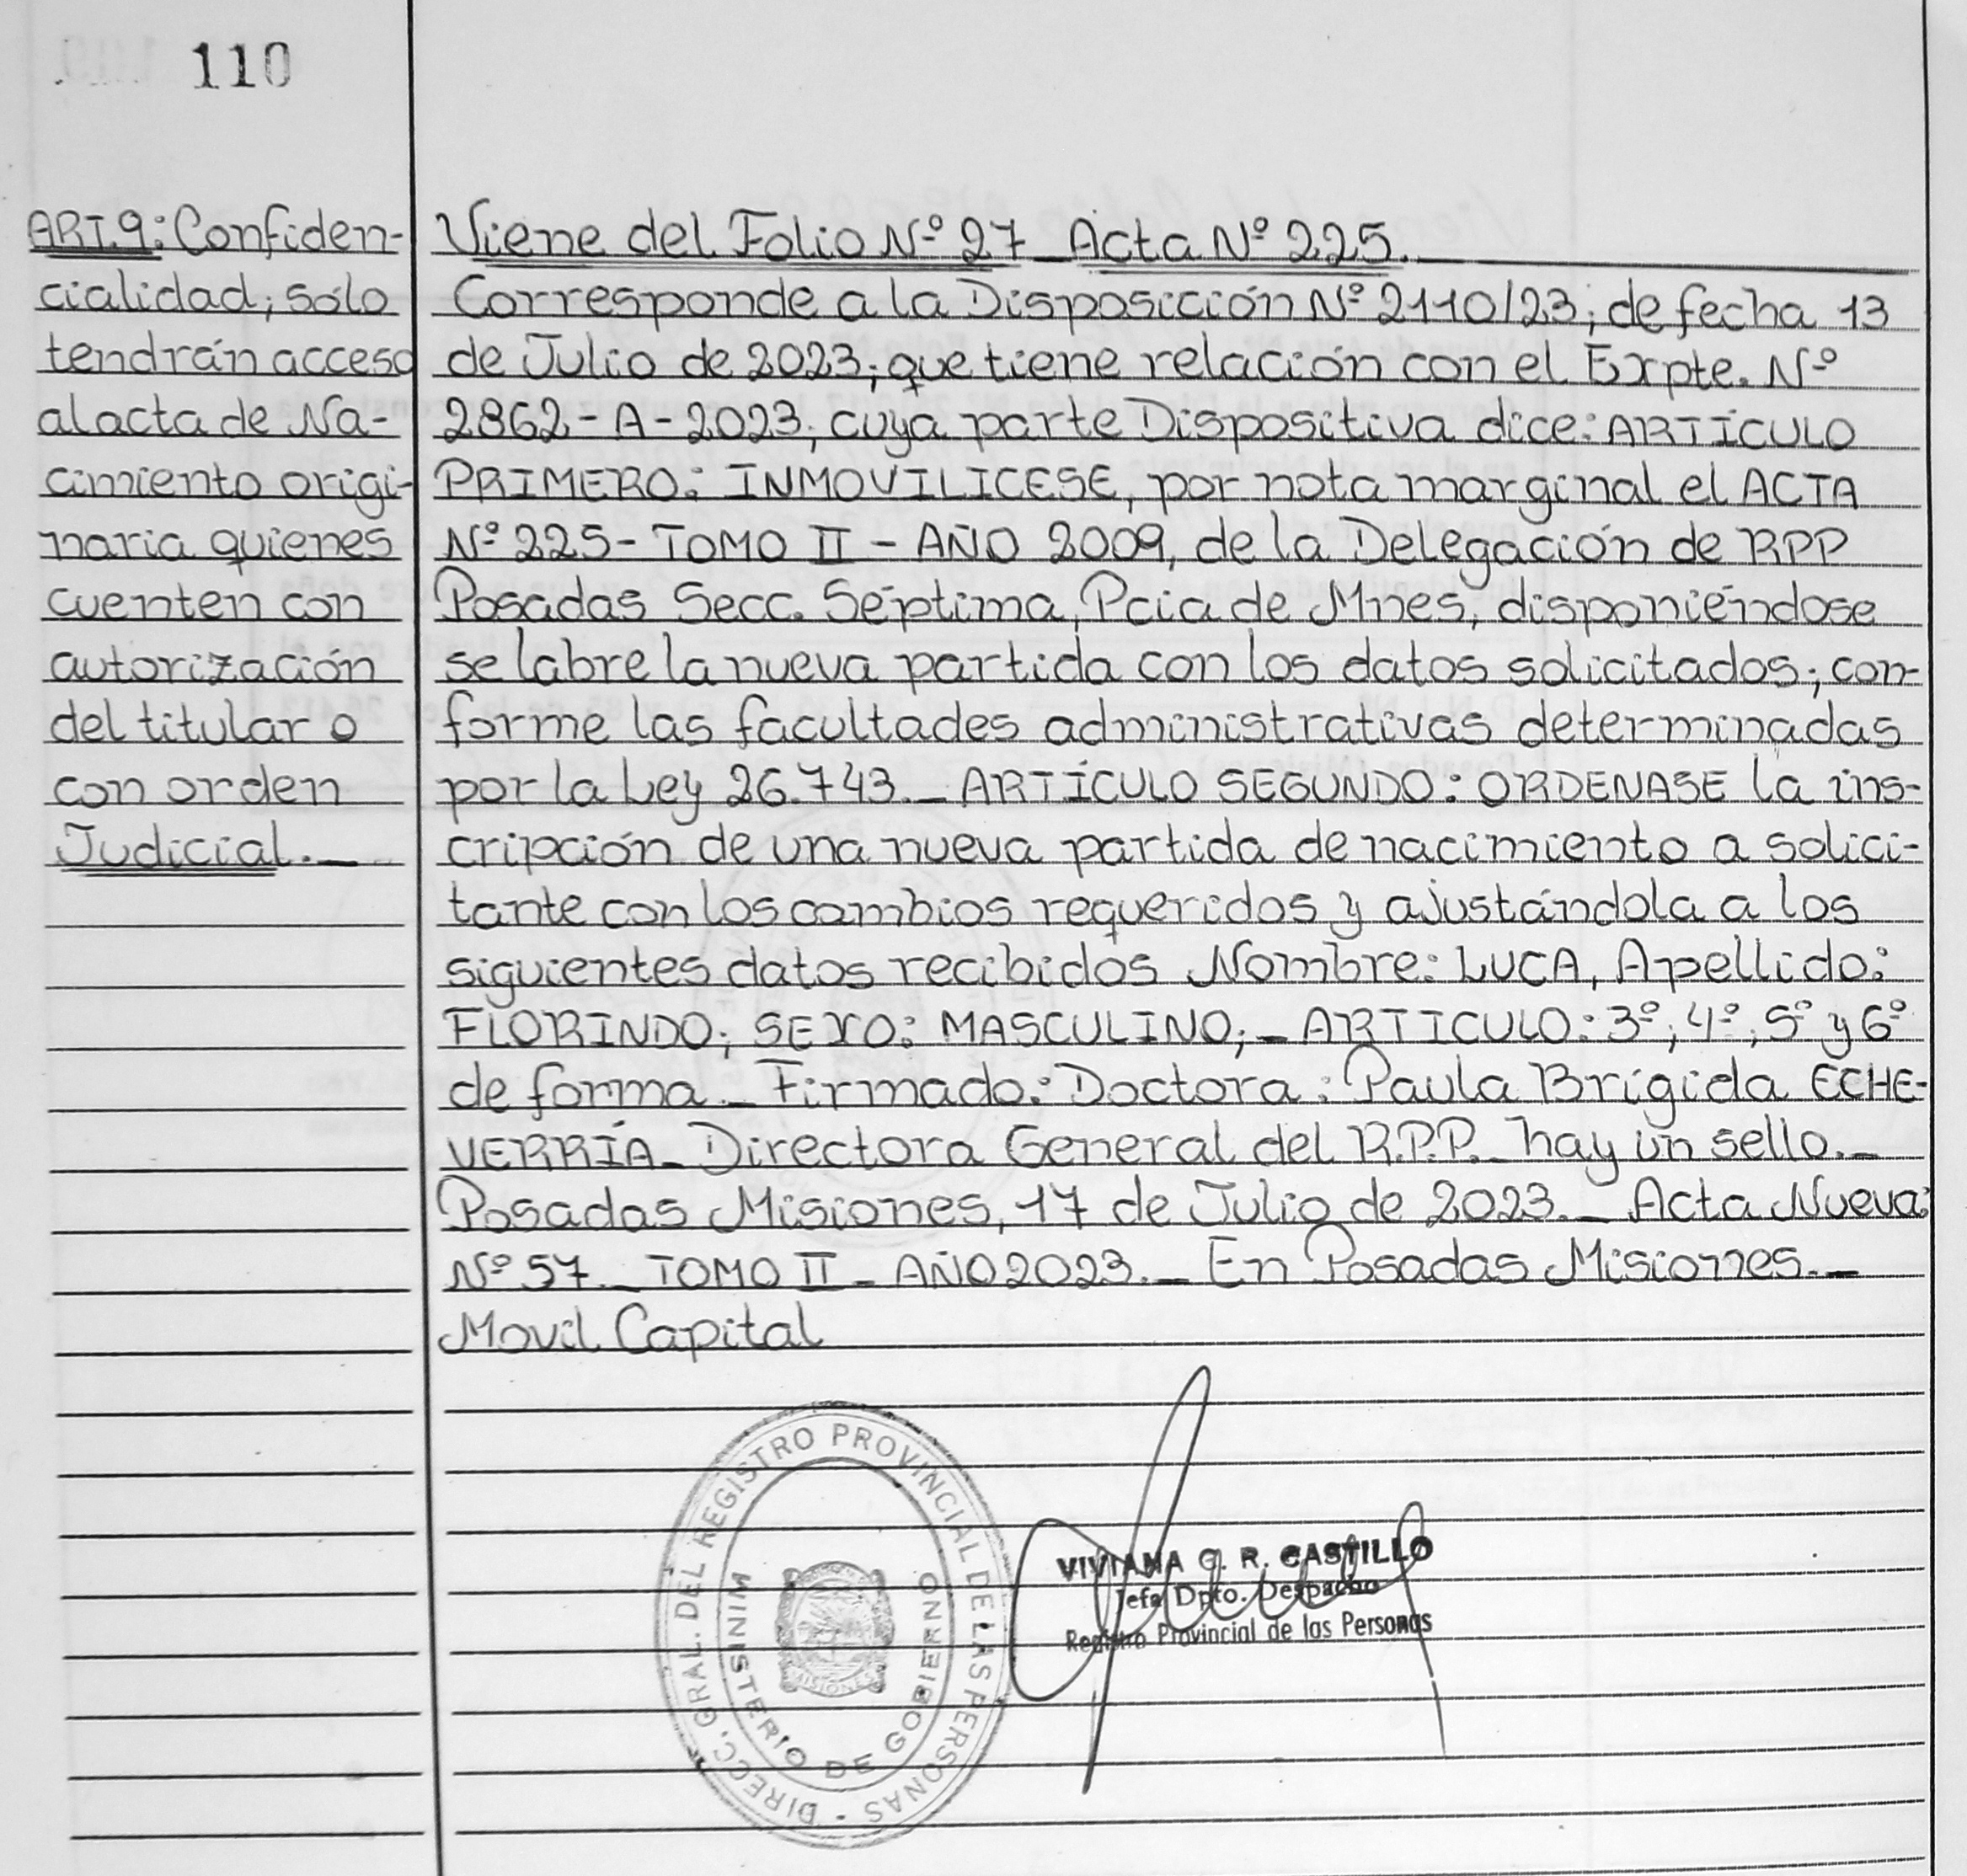 110
ART.9: Confiden-
cialidad; sólo
tendrán acceso
al acta de Na-
cimiento origi-
naria quienes
cuenten con
autorización
del titular o
con orden
Judicial._
Viene del Folio Nº 27_ Acta Nº 225._
Corresponde a la Disposición Nº 2110/23; de fecha 13
de Julio de 2023; que tiene relación con el Expte. Nº
2862-A-2023; cuya parte Dispositiva dice: ARTÍCULO
PRIMERO: INMOVILICESE, por nota marginal el ACTA
Nº 225- TOMO II - AÑO 2009, de la Delegación de RPP
Posadas Secc. Séptima, Pcia de Mnes; disponiéndose
se labre la nueva partida con los datos solicitados; con-
forme las facultades administrativas determinadas
por la Ley 26.743._ ARTÍCULO SEGUNDO: ORDENASE la ins-
cripción de una nueva partida de nacimiento a solici-
tante con los cambios requeridos y ajustándola a los
siguientes datos recibidos Nombre: LUCA, Apellido:
FLORINDO; SEXO: MASCULINO;_ ARTICULO: 3º; 4º; 5º y 6º
de forma_ Firmado: Doctora: Paula Brígida ECHE-
VERRÍA_ Directora General del R.P.P._ hay un sello._
Posadas Misiones, 17 de Julio de 2023._ Acta Nueva:
Nº 57_ TOMO II_ AÑO 2023._ En Posadas Misiones._
Movil Capital
DIRECC. GRAL. DEL REGISTRO PROVINCIAL DE LAS PERSONAS -
MINISTERIO DE GOBIERNO
MISIONES
VIVIANA G. R. CASTILLO
Jefa Dpto. Despacho
Registro Provincial de las Personas